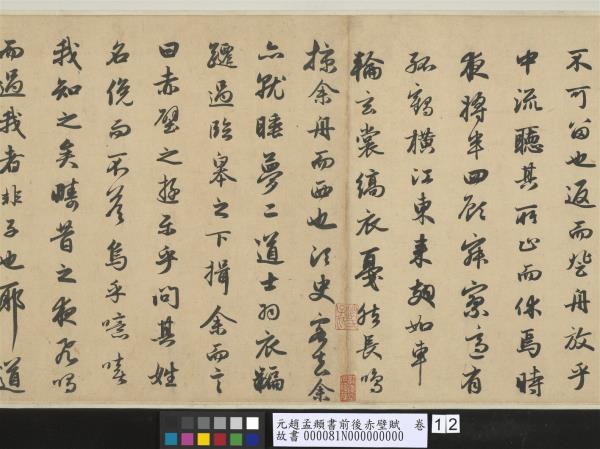 不可留也返而登舟放乎
中流聽其所止而休焉時
夜將半四顧寂寥適有
孤鶴橫江東來翅如車
輪玄裳縞衣戛然長鳴
掠余舟而西也須臾客去余
亦就睡夢二道士羽衣蹁
躚過臨皋之下揖余而言
曰赤壁之遊樂乎問其姓
名俛而不答烏乎噫嘻
我知之矣疇昔之夜飛鳴
而過我者非子也耶道
元趙孟頫書前後赤壁賦 卷 12
故書 000081N000000000